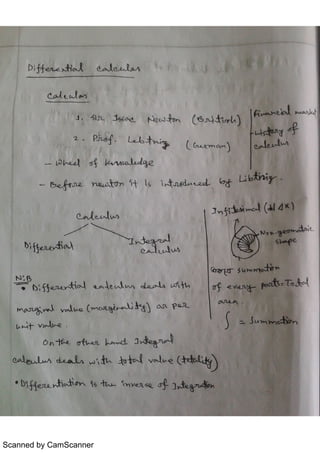 Differential calculas
Calculas
1. Sir Isaac Newton (British)
2. Prof. Leibtnig (German)
Financial market
- History of
calculus
- Wheel of Knowledge
- Before neaton it is introduced by Libtnig.
Calculus
Differential
Integral
calculus
Infitesimal
Non-geometric
shape
summation
of every parts = Total
area.
∫ = Summation
N:B
• Differential calculus deals with
marginal value (marginality) as per
unit value.
On the other hand Integral
calculus deals with total value (totality)
• Differentiation is the inverse of Integration
Scanned by CamScanner